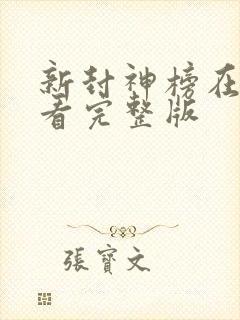 新封神榜在
看完整版
張寶文